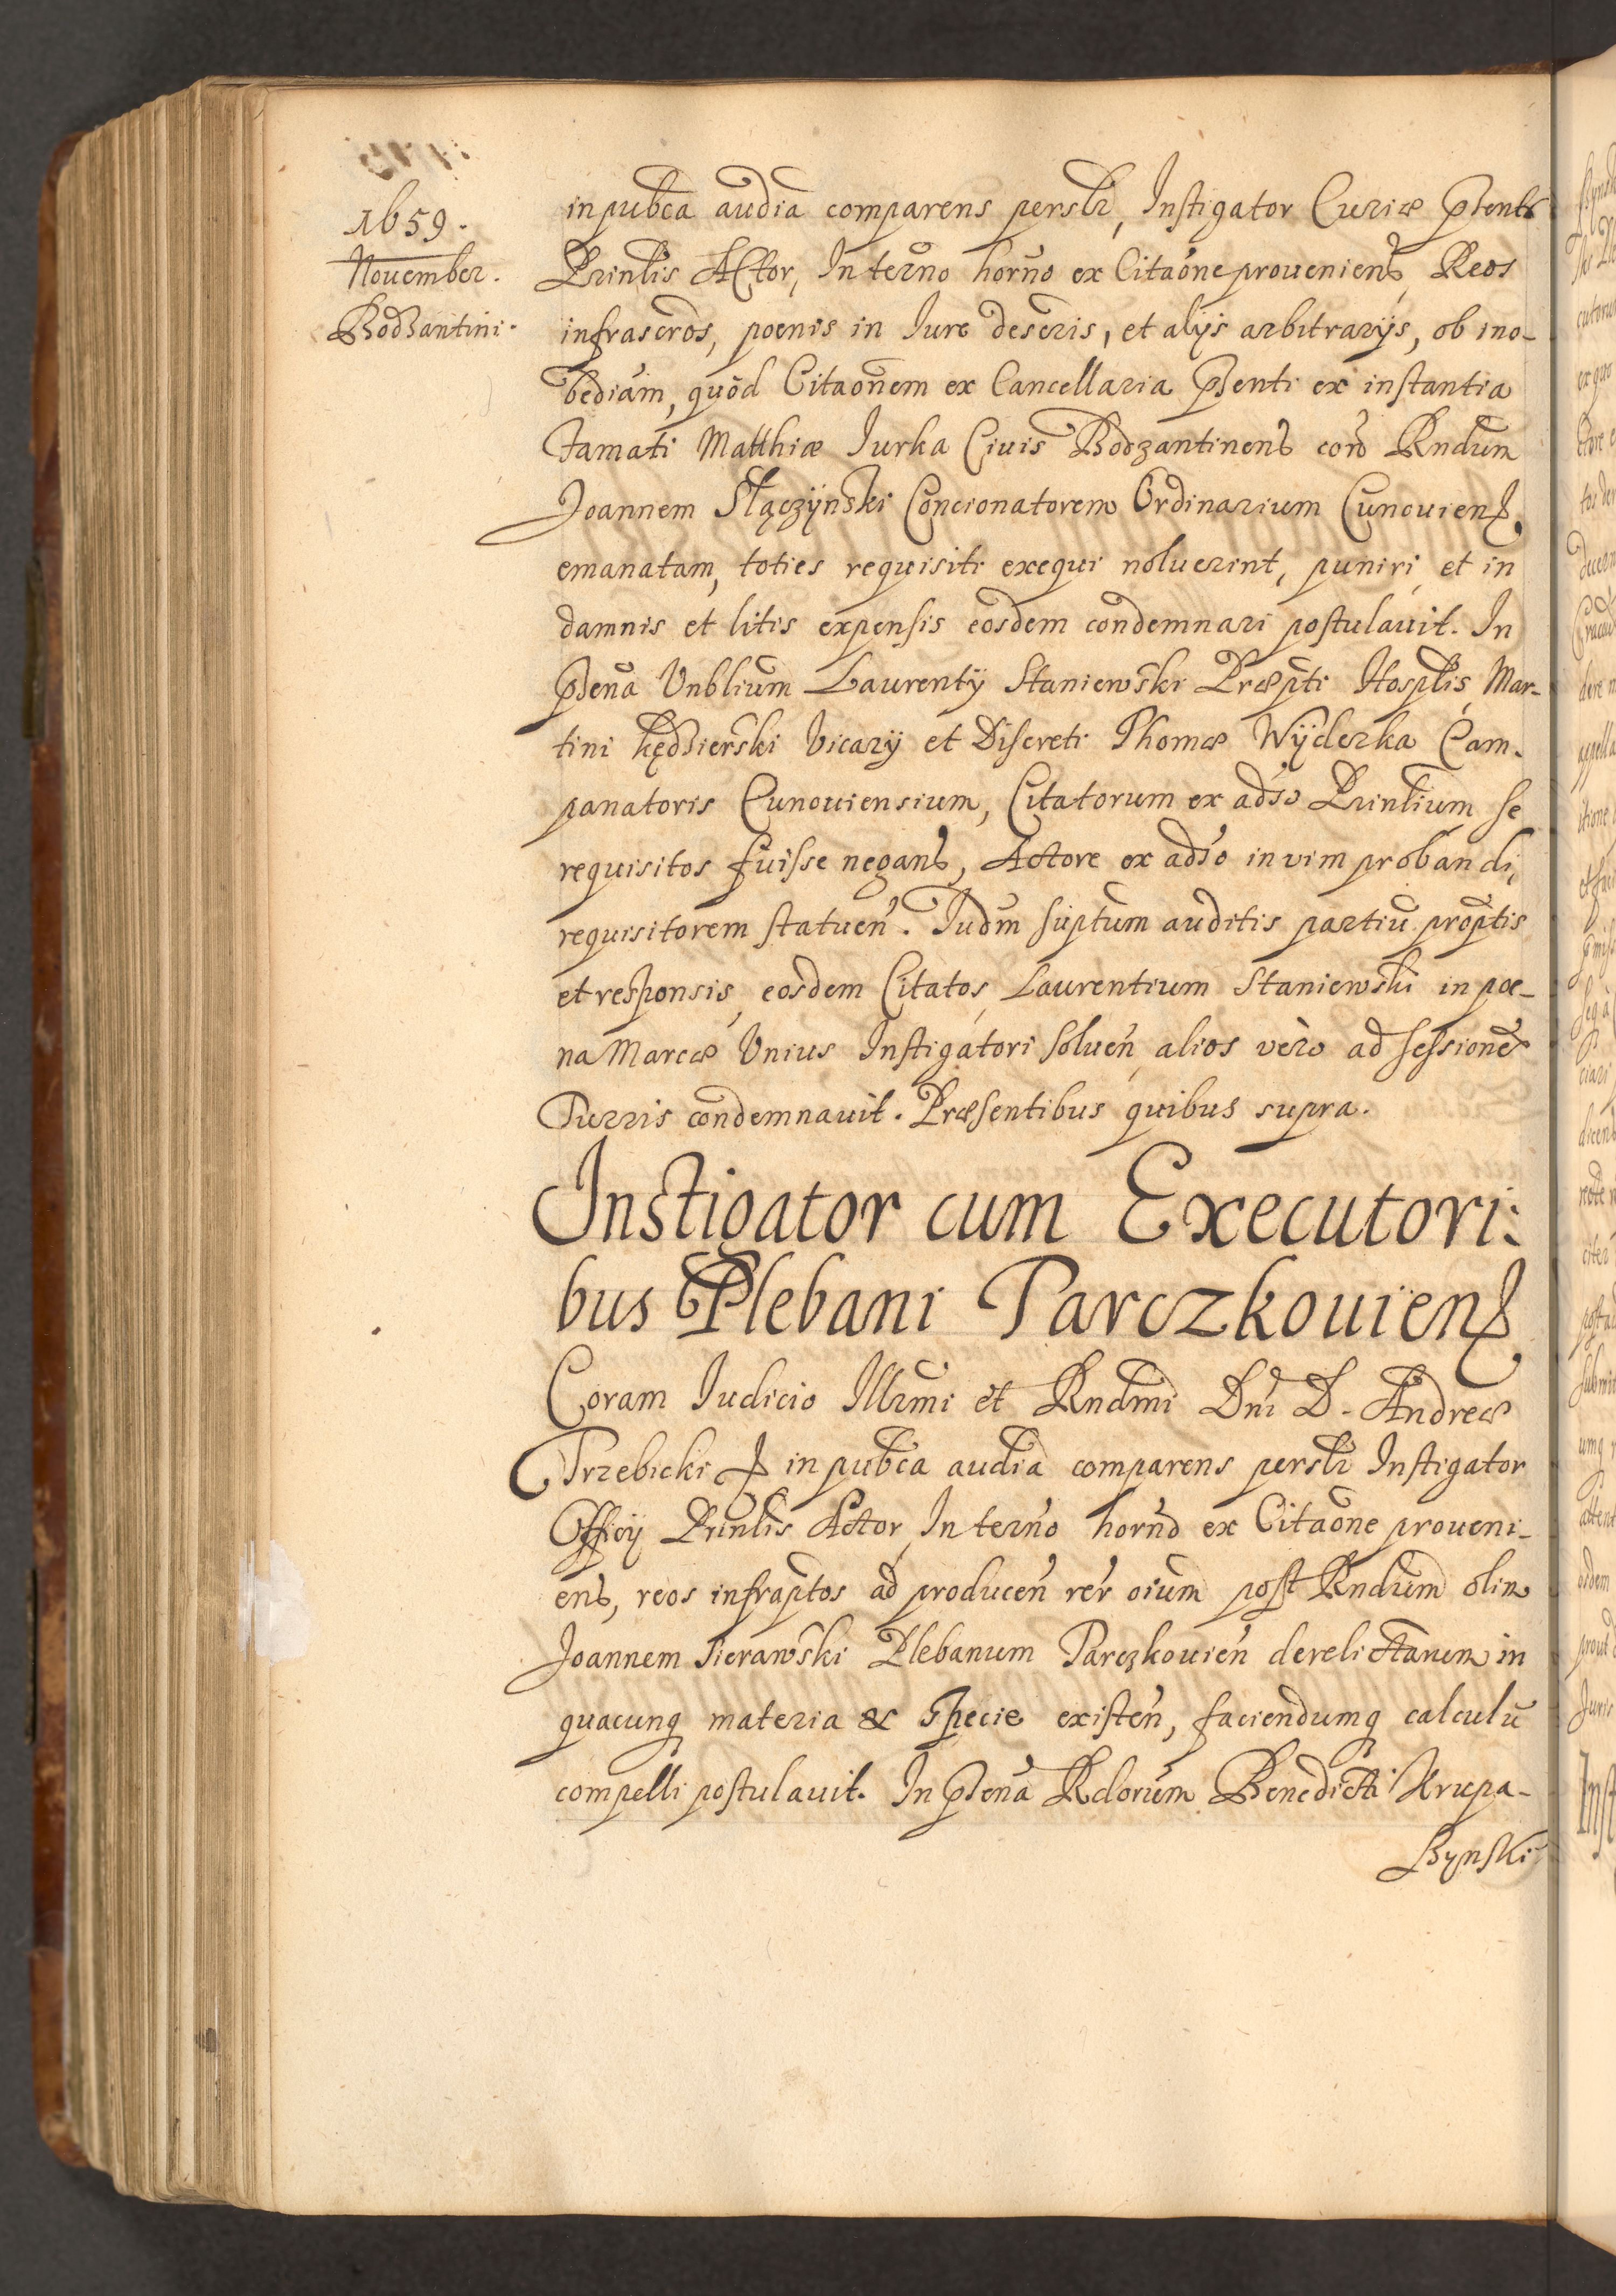 1659.
Nouember.
Bodzantini.
in pubca audia comparens persłr, Instigator Curiæ pñents
Prinlis Actor, In termo horno ex Citaone proueniens, Reos
infrascros, poenis in Iure descris, et alijs arbitrarijs, ob ino-
bediam, quod Citaonem ex Cancellaria pñenti ex instantia
Famati Matthiæ Iurka Ciuis Bodzantinens con Rndum
Joannem Slączynski Concionatorem Ordinarium Cunouiens
emanatam, toties requisiti exequi noluerint, puniri et in
damnis et litis expensis eosdem condemnari postulauit. In
pñena Vnblium Laurentij Staniewski Præpti Hosplis, Mar-
tini Kędzierski Vicarij et Discreti Thomæ Wyderka Cam-
panatoris Cunouiensium, Citatorum ex adso Prinlium se
requisitos fuisse negans, Actore ex adso in vim probandi,
requisitorem statuen. Iudm suptum auditis partiu proptis
et responsis, eosdem Citatos, Laurentium Staniewski in pœ-
na Marcæ Vnius Instigatori soluen, alios vero ad sessione
Turris condemnauit. Præsentibus quibus supra.
Instigator cum Executori:
bus Plebani Parczkouiens
Coram Iudicio Illrmi et Rndmi Dni D. Andreæ
Trzebicki & in pubca audia comparens persłr Instigator
Officij Prinlis Actor, In termo horno ex Citaone proueni-
ens, reos infraptos ad producen rer oium post Rndum olim
Joannem Sierawski Plebanum Parczkouien derelictarum in
quacunq materia & specie existen, faciendumq calculu
compelli postulauit. In pñena Rdorum Benedicti Krupa-
Bynski